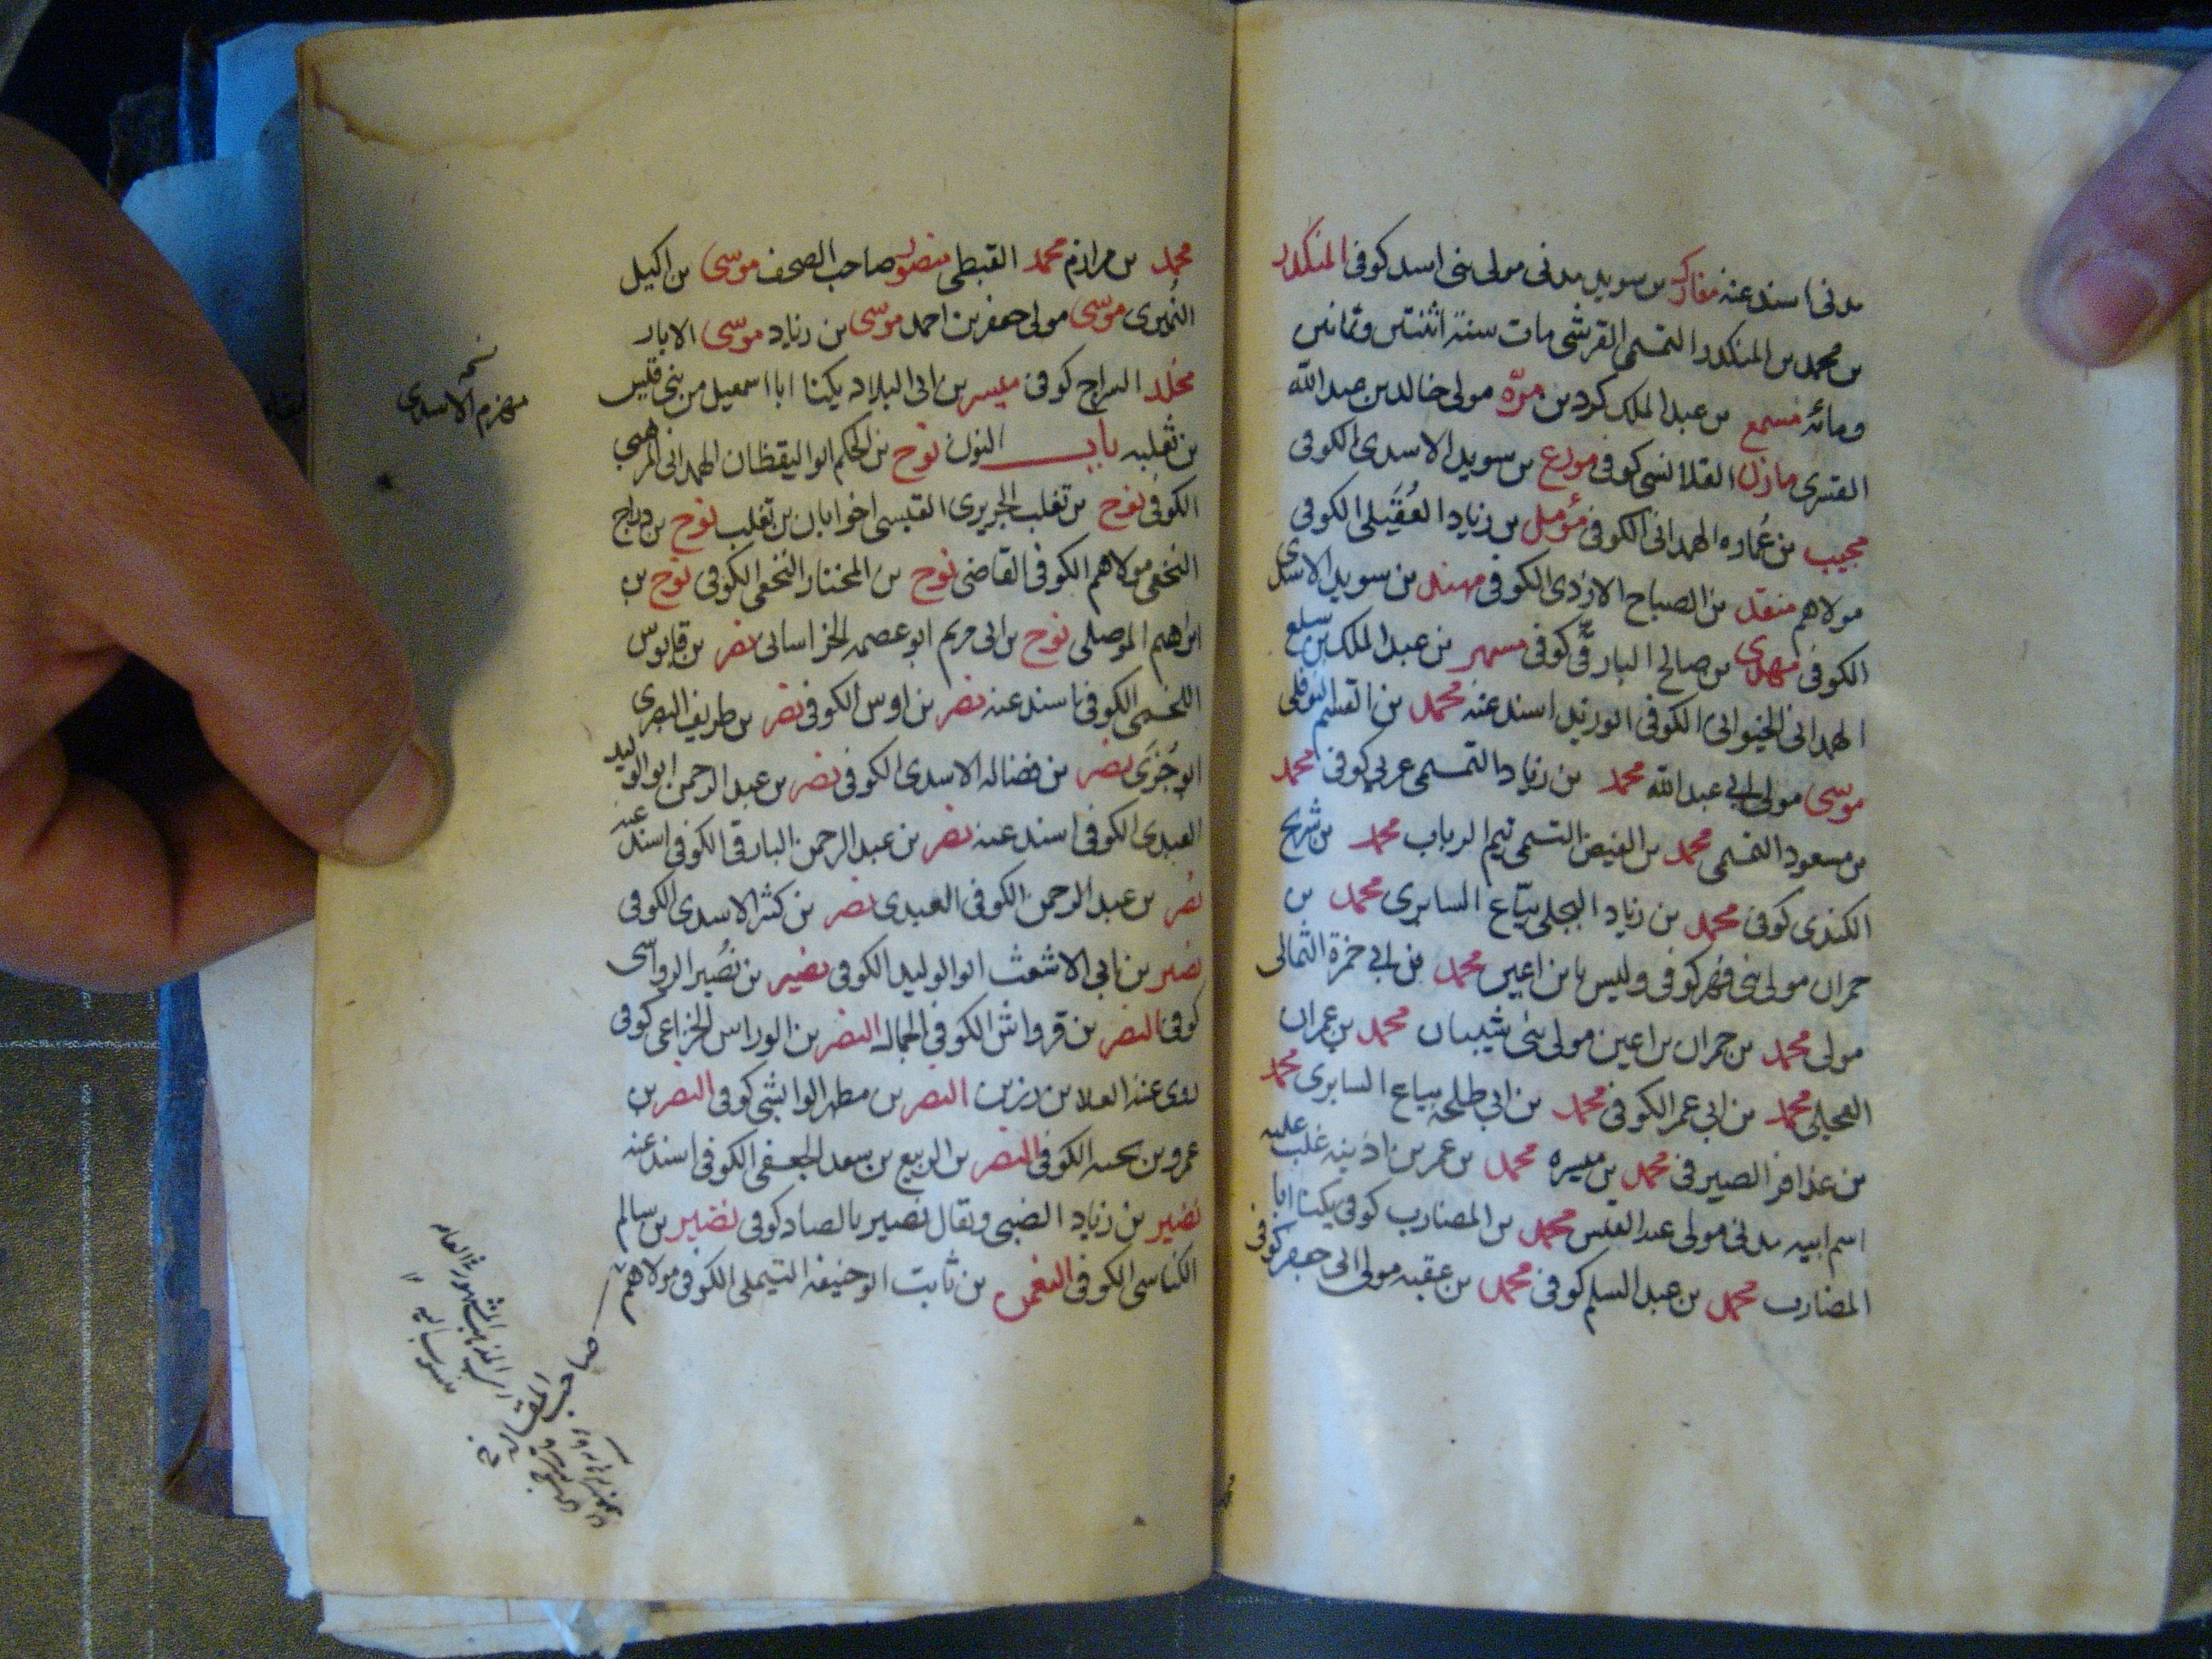 مدنی اسند عنه مفارک بن سوید مدنی مولی بنی اسد کوفی المنکدر
بن محمد بن المنکدر التیمی القرشی مات سنة اثنتین وثمانین
ومائه مسمع بن عبد الملک کردین مرّه مولی خالد بن عبد الله
القسری مازن القلانسی کوفی مورع بن سوید الاسدی الکوفی
مجیب بن عُماره الهمدانی الکوفی مؤمل بن زیاد العُقَیلی الکوفی
مولاهم منقذ بن الصباح الازدی الکوفی مهند بن سوید الاسدی
الکوفی مهدی بن صالح البارقی کوفی مسهر بن عبد الملک بن سلع
الهمدانی الخیوانی الکوفی ابو زید اسند عنه محمد بن القسم النوفلی
موسی مولی ابی عبد الله محمد بن زیاد التمیمی عربی کوفی محمد
بن مسعود التمیمی محمد بن الفیض التیمی تیم الرباب محمد بن شریح
الکندی کوفی محمد بن زیاد البجلی بیّاع السابری محمد بن
حمران مولی بنی فهر کوفی ولیس بابن اعین محمد بن ابی حمزة الثمالی
مولی محمد بن حمران بن اعین مولی بنی شیبان محمد بن عمران
العجلی محمد بن ابی عمر الکوفی محمد بن ابی طلحه بیاع السابری محمد
بن عذافر الصیرفی محمد بن میسره محمد بن عمر بن اذینه غلب علیه
اسم ابیه مدنی مولی عبد القیس محمد بن المضارب کوفی یکنا ابا
المضارب محمد بن عبد السلم کوفی محمد بن عقبه مولی ابی جعفر کوفی
محمد بن مرازم محمد القبطی منصور صاحب الصحف موسی بن اکیل
النُمیری موسی مولی جعفر بن احمد موسی بن زیاد موسی الابار
مخلد السراج کوفی میسر بن ابی البلاد یکنا ابا اسمعیل من بنی قلیب
بن ثعلبه باب النون نوح بن الحکم ابو الیقظان الهمدانی المرهبی
الکوفی نوح بن تغلب الجریری القیسی اخو ابان بن تغلب نوح بن دراج
النخعی مولاهم الکوفی القاضی نوح بن المختار النخعی الکوفی نوح بن
ابراهیم الموصلی نوح بن ابی مریم ابو عصمه الخراسانی نصر بن قابوس
اللخمی الکوفی اسند عنه نصر بن اوس الکوفی نصر بن طریف البصری
ابو جُزَی نصر بن فضاله الاسدی الکوفی نصر بن عبد الرحمن ابو الولید
العبدی الکوفی اسند عنه نصر بن عبد الرحمن البارقی الکوفی اسند عنه
نصر بن عبد الرحمن الکوفی العبدی نصر بن کثیر الاسدی الکوفی
نصیر بن ابی الاشعث ابو الولید الکوفی نصیر بن نُصیر الرواسی
کوفی النضر بن قرواش الکوفی الجمال النضر بن الوراس الخزاعی کوفی
روی عنه العلا بن رزین النضر بن مطهر الوابشی کوفی النضر بن
عمرو بن یحیی الکوفی النضر بن الربیع بن سعد الجعفی الکوفی اسند عنه
نضیر بن زیاد الضبی ویقال نصیر بالصاد کوفی نضیر بن سالم
الکناسی الکوفی النعمن بن ثابت ابو حنیفه التیملی الکوفی مولاهم
مهزم الاسدی
صاحب المقاله